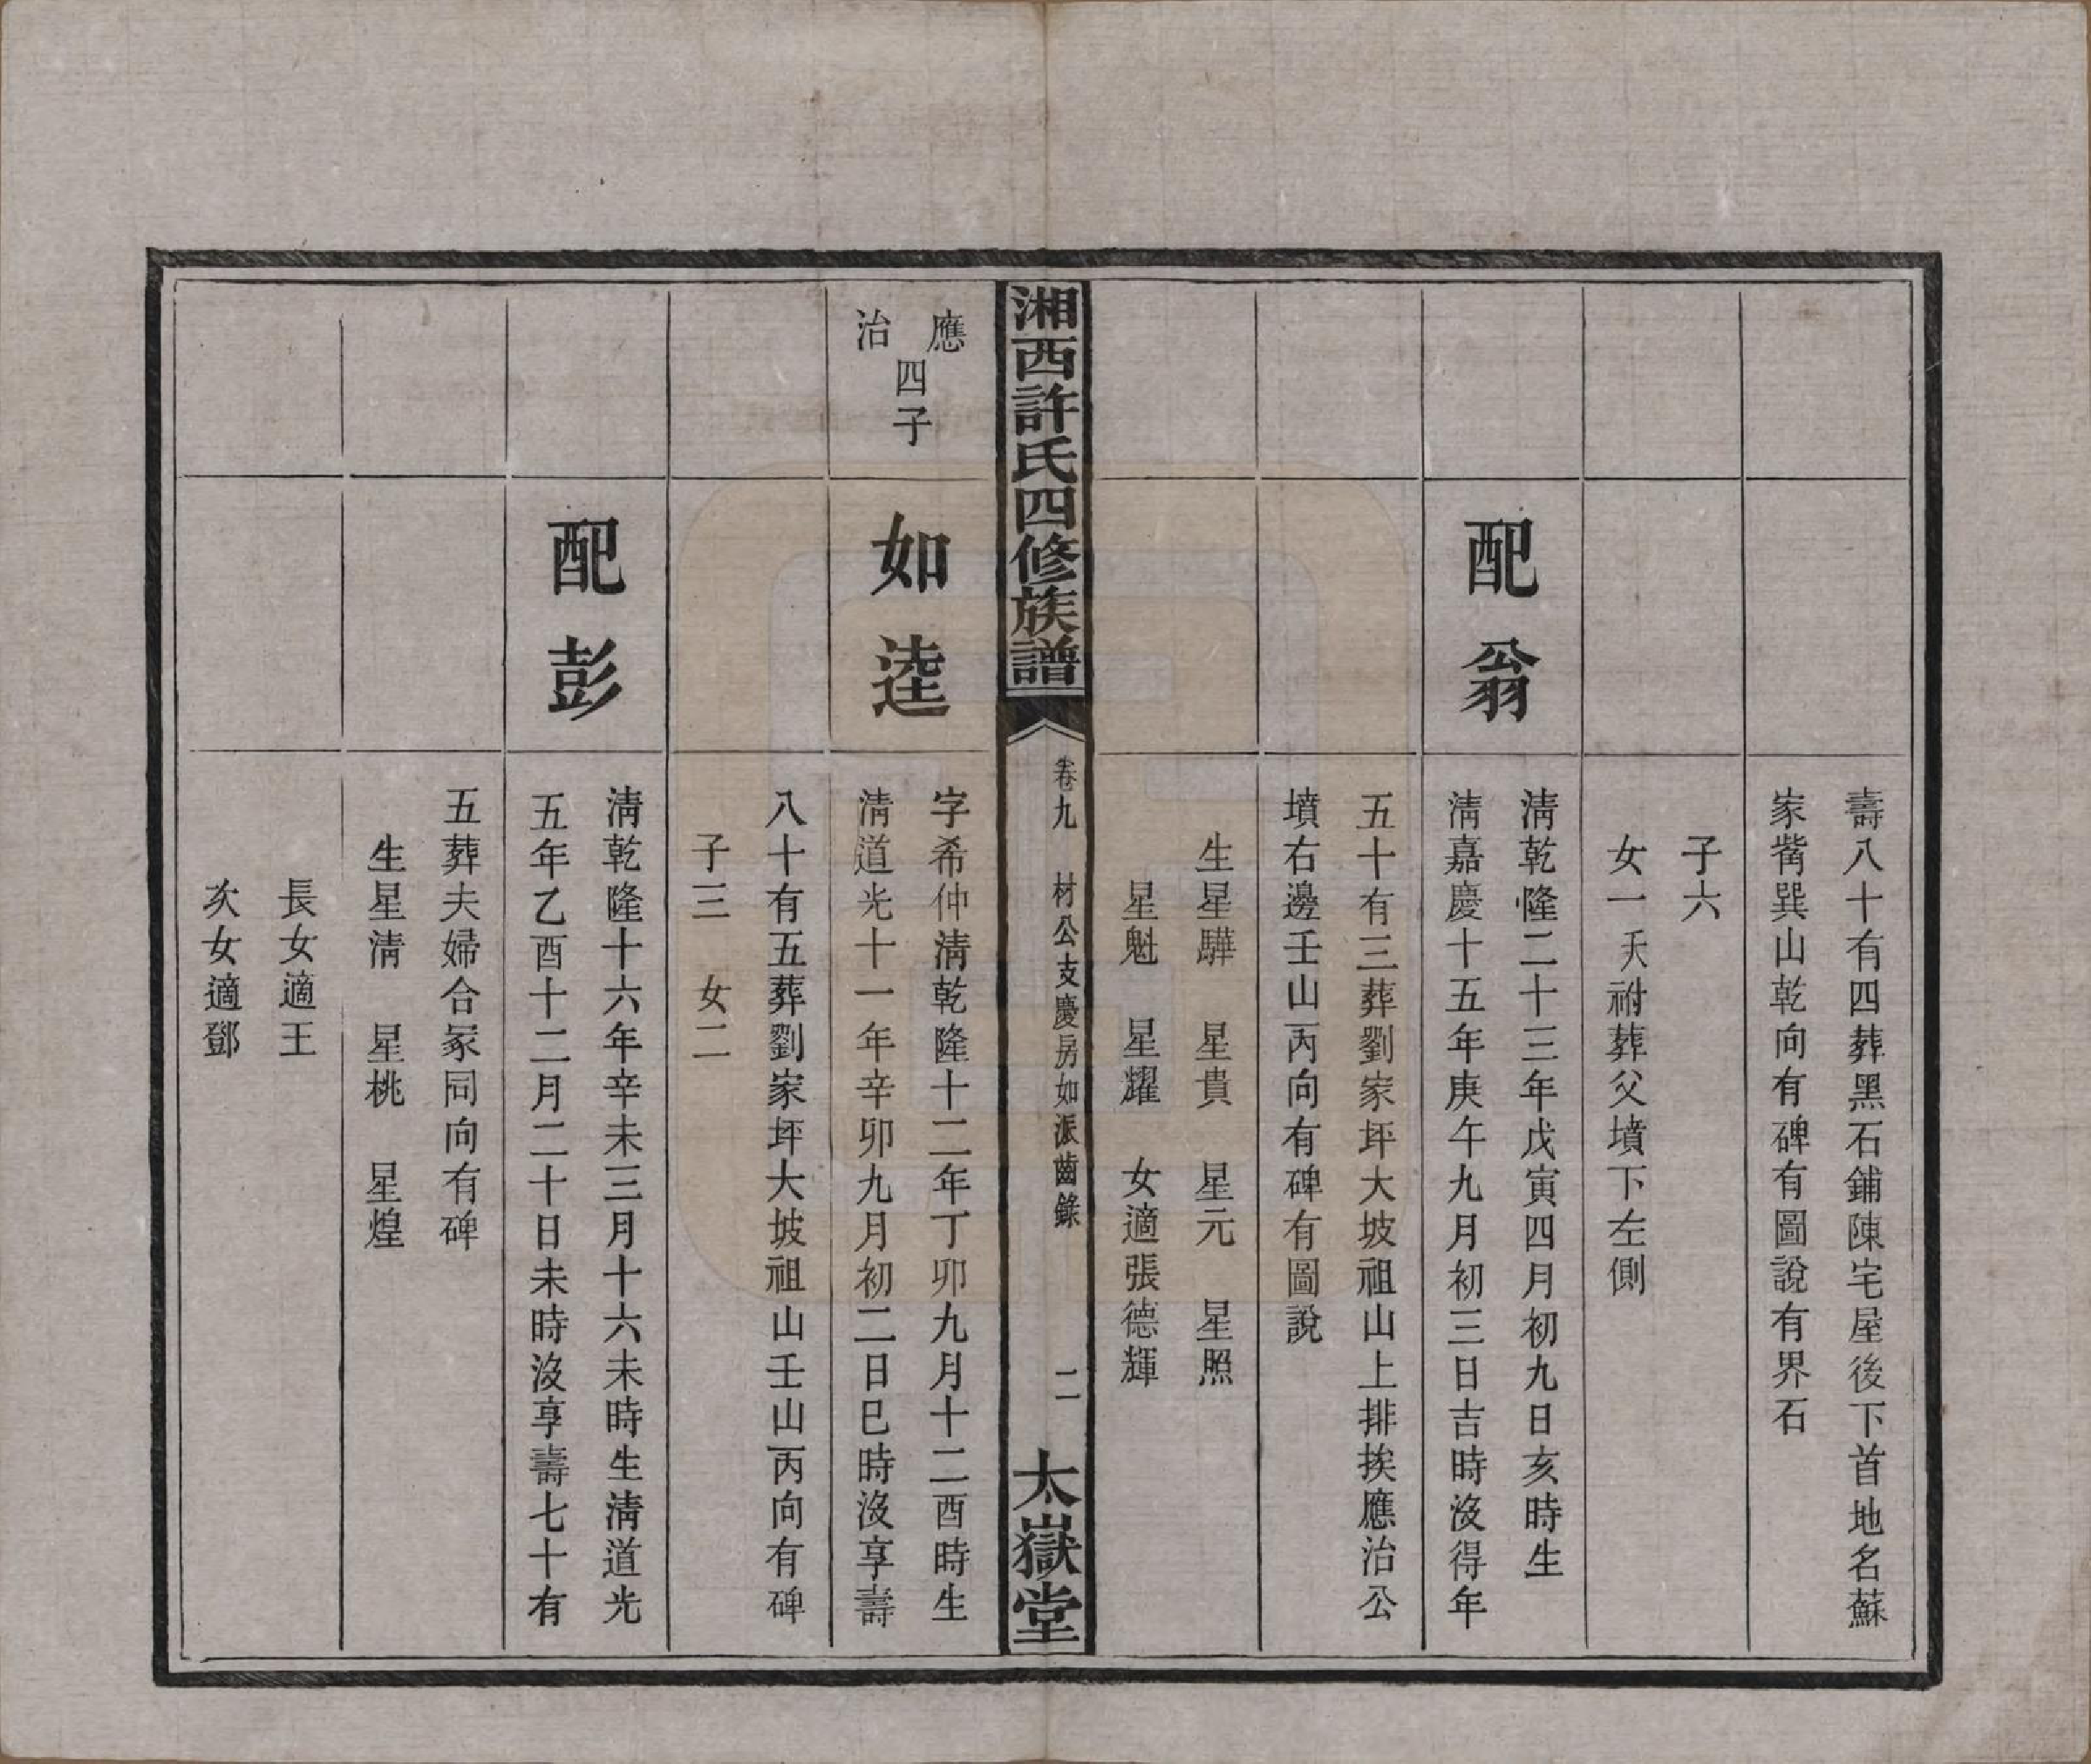 壽八十有四葬黑石鋪陳宅屋後下首地名蘇
家觜巽山乾向有碑有圖說有界石
子六
女一夭祔葬父墳下左側
配翁
淸乾隆二十三年戊寅四月初九日亥時生
淸嘉慶十五年庚午九月初三日吉時沒得年
五十有三葬劉家坪大坡祖山上排挨應治公
墳右邊壬山丙向有碑有圖說
生星驊　星貴　星元　星照
星魁　星耀　女適張德輝
湘西許氏四修族譜
卷九　材公支慶房如派齒錄
二
太嶽堂
應治四子
如逵
字希仲淸乾隆十二年丁卯九月十二酉時生
淸道光十一年辛卯九月初二日巳時沒享壽
八十有五葬劉家坪大坡祖山壬山丙向有碑
子三　女二
配彭
淸乾隆十六年辛未三月十六未時生淸道光
五年乙酉十二月二十日未時沒享壽七十有
五葬夫婦合冢同向有碑
生星淸　星桃　星煌
長女適王
次女適鄧